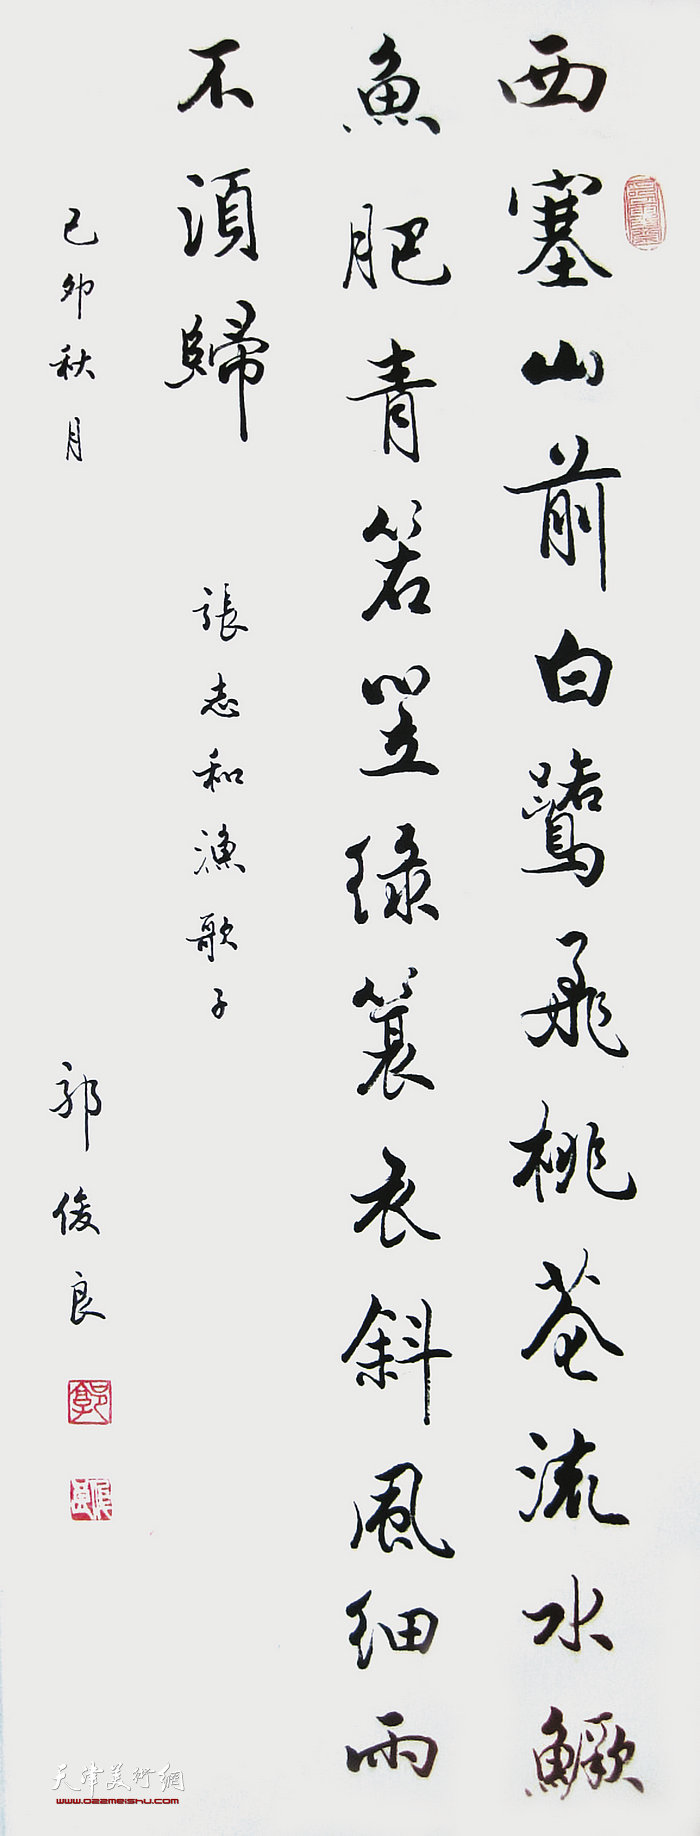 西塞山前白鷺飛桃花流水鱖
魚肥青箬笠綠蓑衣斜風細雨
不須歸
張志和漁歌子
己卯秋月
郭俊良
天津美術網
www.022meishu.com